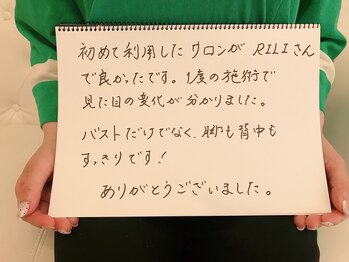 初めて利用したサロンが RILIさん
で良かったです。1度の施術で
見た目の変化が分かりました。
バストだけでなく、脚も背中も
すっきりです!
ありがとうございました。